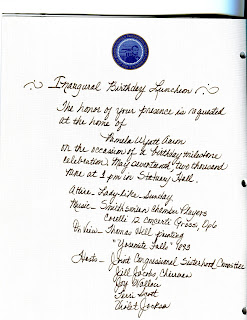 Inaugural Birthday Luncheon
The honor of your presence is requested
at the home of
Pamela Wyatt Aaron
on the occasion of a birthday milestone
celebration May seventeenth, two thousand
nine at 1 pm in Statuary Hall.
Attire - Lady like - Sunday
Music - Smithsonian Chamber Players
Corelli 12 Concerti Grossi, Op 6
On View - Thomas Hill painting
"Yosemite Falls" 1893
Hosts - Joint Congressional Sisterhood Committee
Jill Jacobs, Chairman
Joy Wallow
Terri Scott
Violet Jackson